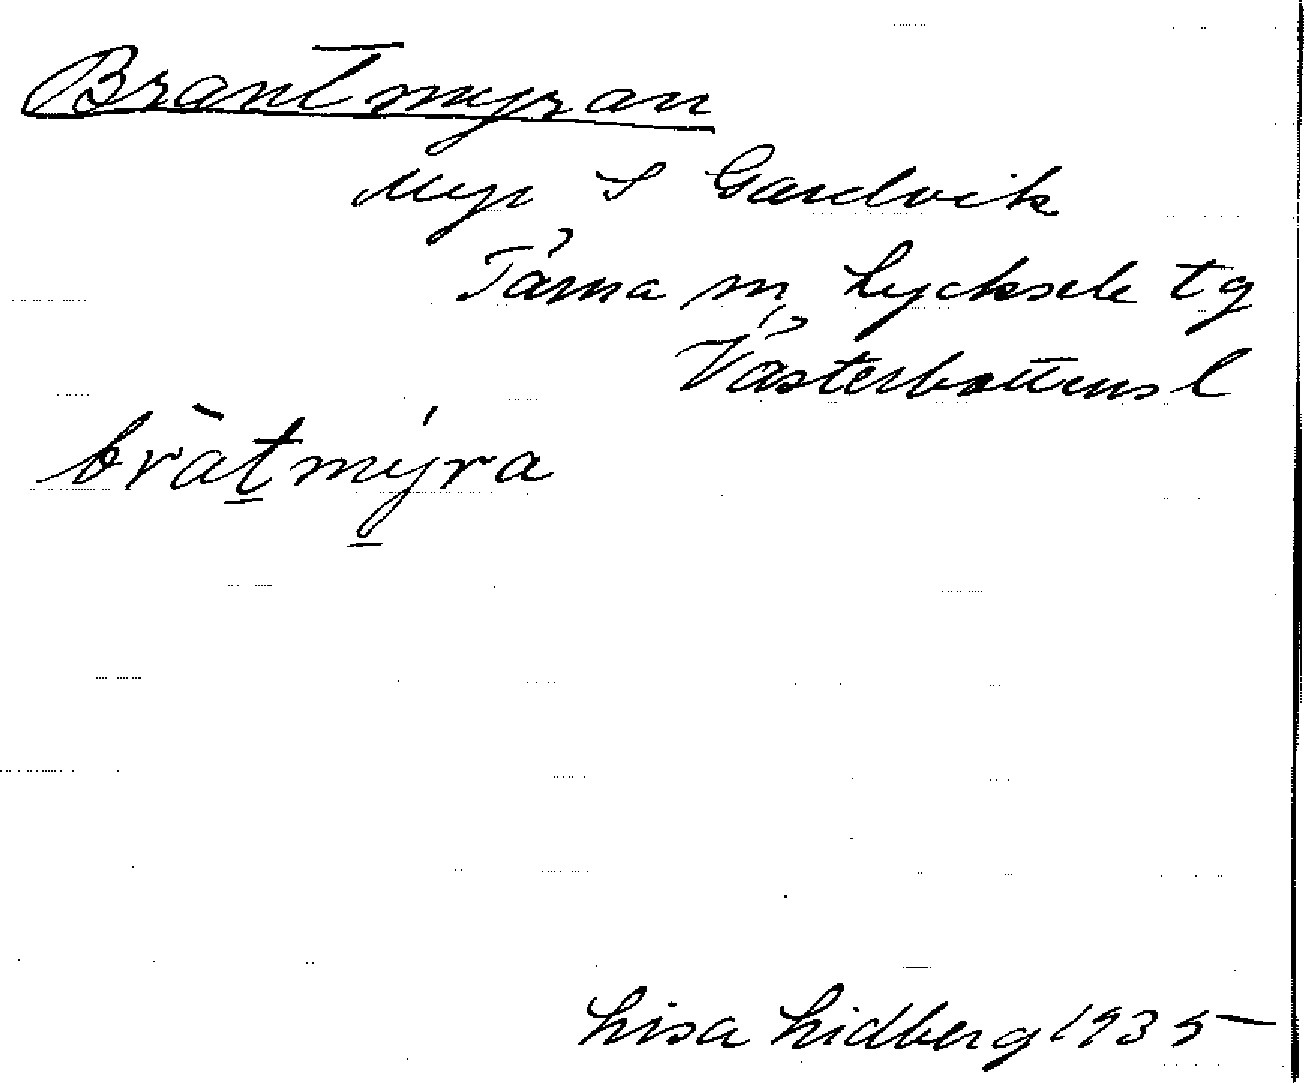 Brantmyran
Myr S Gardvik
Tärna sn, Lycksele tg
Västerbottens l
bràt̲mý̲ra
Lisa Lidberg 1935